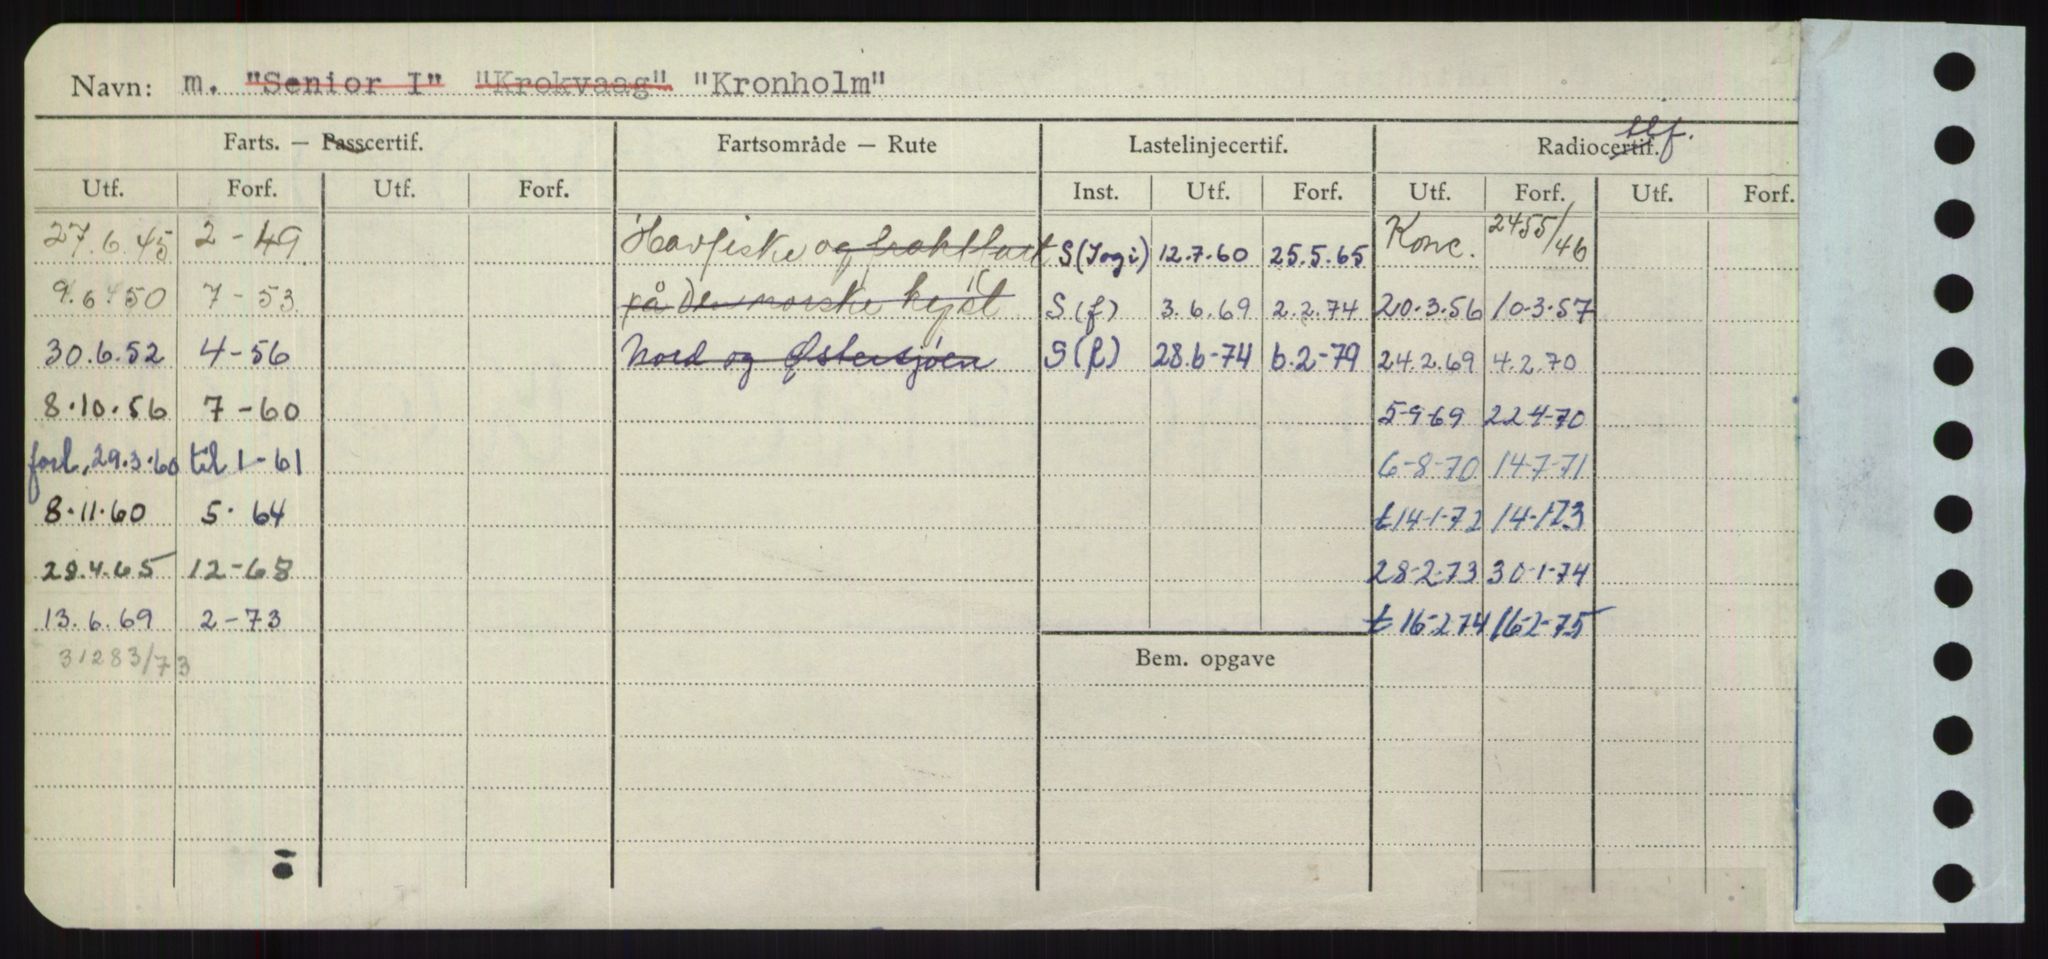 Navn: m. "Senior I" "Krokvaag" "Kronholm"
Farts. — Passcertif. Fartsområde — Rute Lastelinjecertif. Radiocertif. tlf.
Utf. Forf. Utf. Forf. Inst. Utf. Forf. Utf. Forf. Utf. Forf.
27.6.45 2-49 Havfiske og fraktfart S (Togi) 12.7.60 25.5.65 Konc. 2455/46
9.6.50 7-53 på den norske kyst S (f) 3.6.69 2.2.74 20.3.56 10-3-57
30.6.52 4-56 Nord og Østersjøen S (f) 28.6-74 6.2-79 24.2.69 4.2.70
8.10.56 7-60 5-9-69 22-4-70
forl. 29.3.60 til 1-61 6-8-70 14-7-71
8.11.60 5. 64 t 14-1-72 14-1-73
28.4.65 12-68 28-2-73 30-1-74
13.6.69 2-73 t 16-2 74 16-2-75
31283/73
Bem. opgave